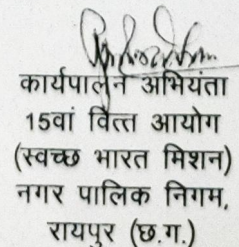 कार्यपालन अभियंता
15वां वित्त आयोग
(स्वच्छ भारत मिशन)
नगर पालिक निगम,
रायपुर (छ.ग.)